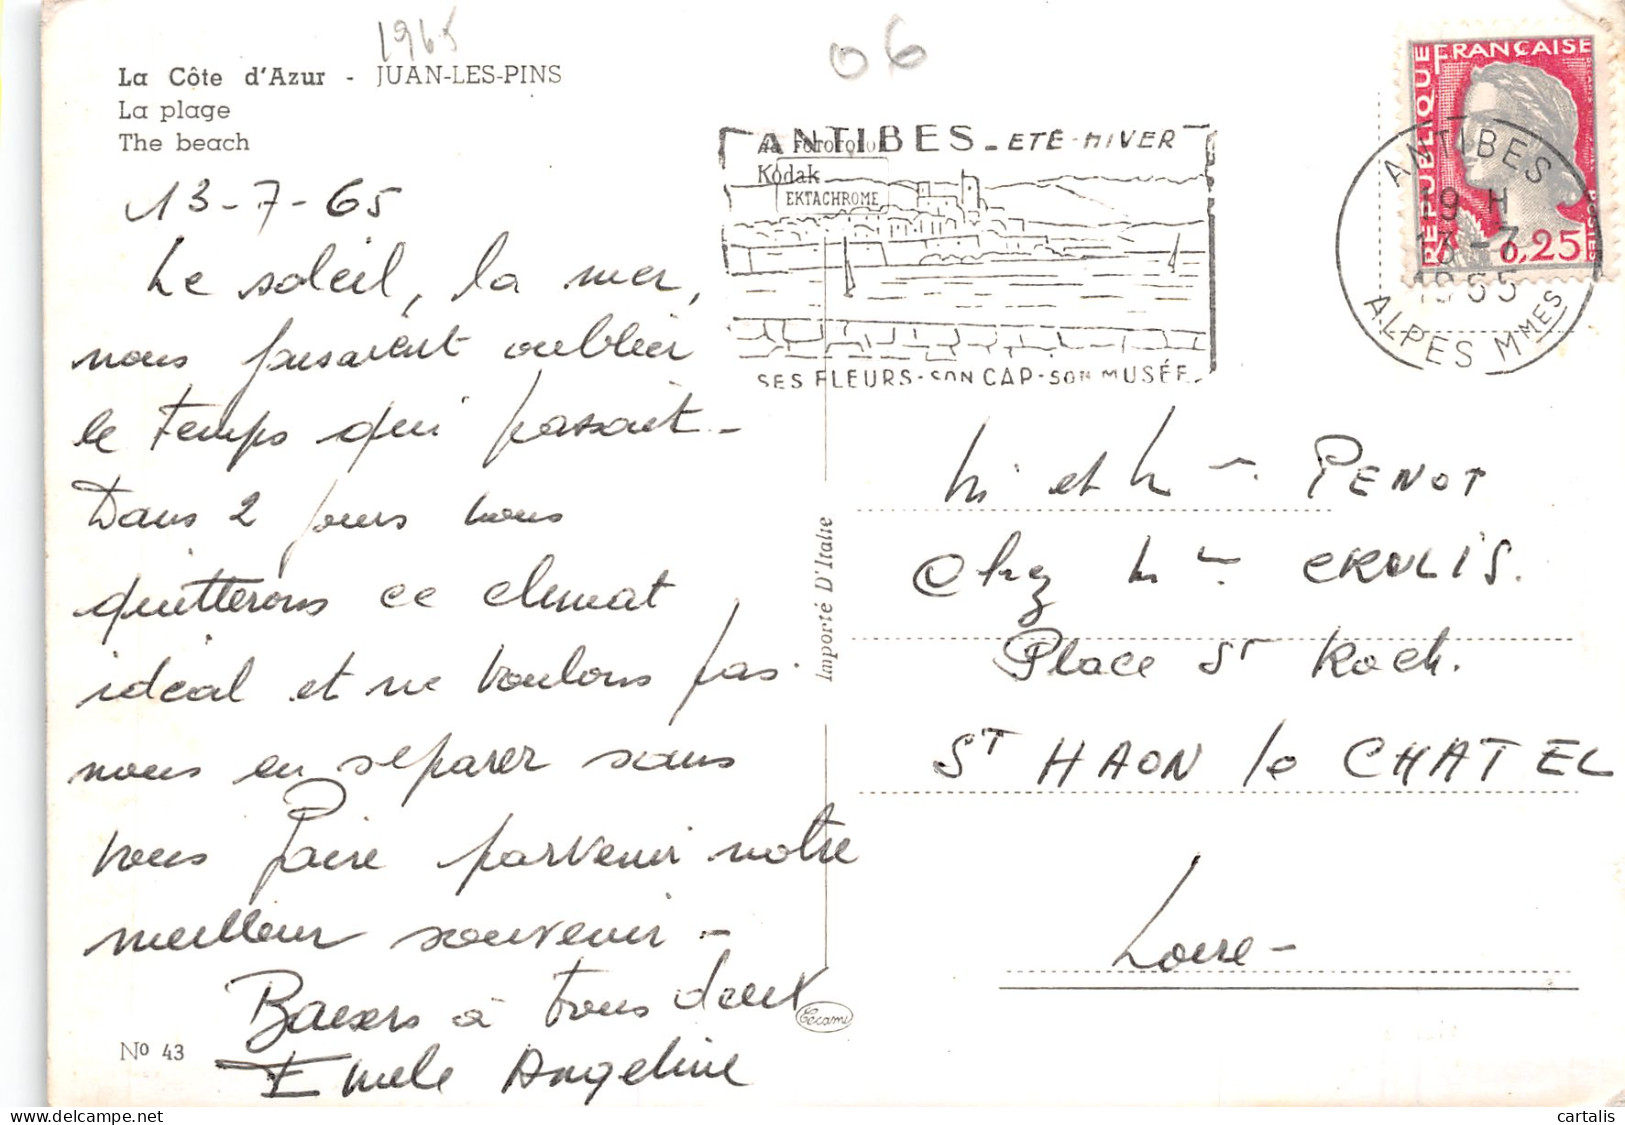 1965
06
La Côte d'Azur - JUAN-LES-PINS
La plage
The beach
13-7-65
Le soleil, la mer,
nous faisaient oublier
le temps qui passait -
Dans 2 jours nous
quitterons ce climat
idéal et ne voulons pas
nous en séparer sans
vous faire parvenir notre
meilleur souvenir -
Baisers à tous deux
Emile Angeline
No 43
ANTIBES - ETE - HIVER
Kodak
EKTACHROME
SES FLEURS - SON CAP - SON MUSÉE
REPUBLIQUE FRANÇAISE
POSTES
0,25
ANTIBES
19 H
13 - 7
1965
ALPES Mmes
Importé D'Italie
Mr et Mme PENOT
Chez Mme
Place St Roch.
ST HAON le CHATEL
Loire -
Cecami
cartalis